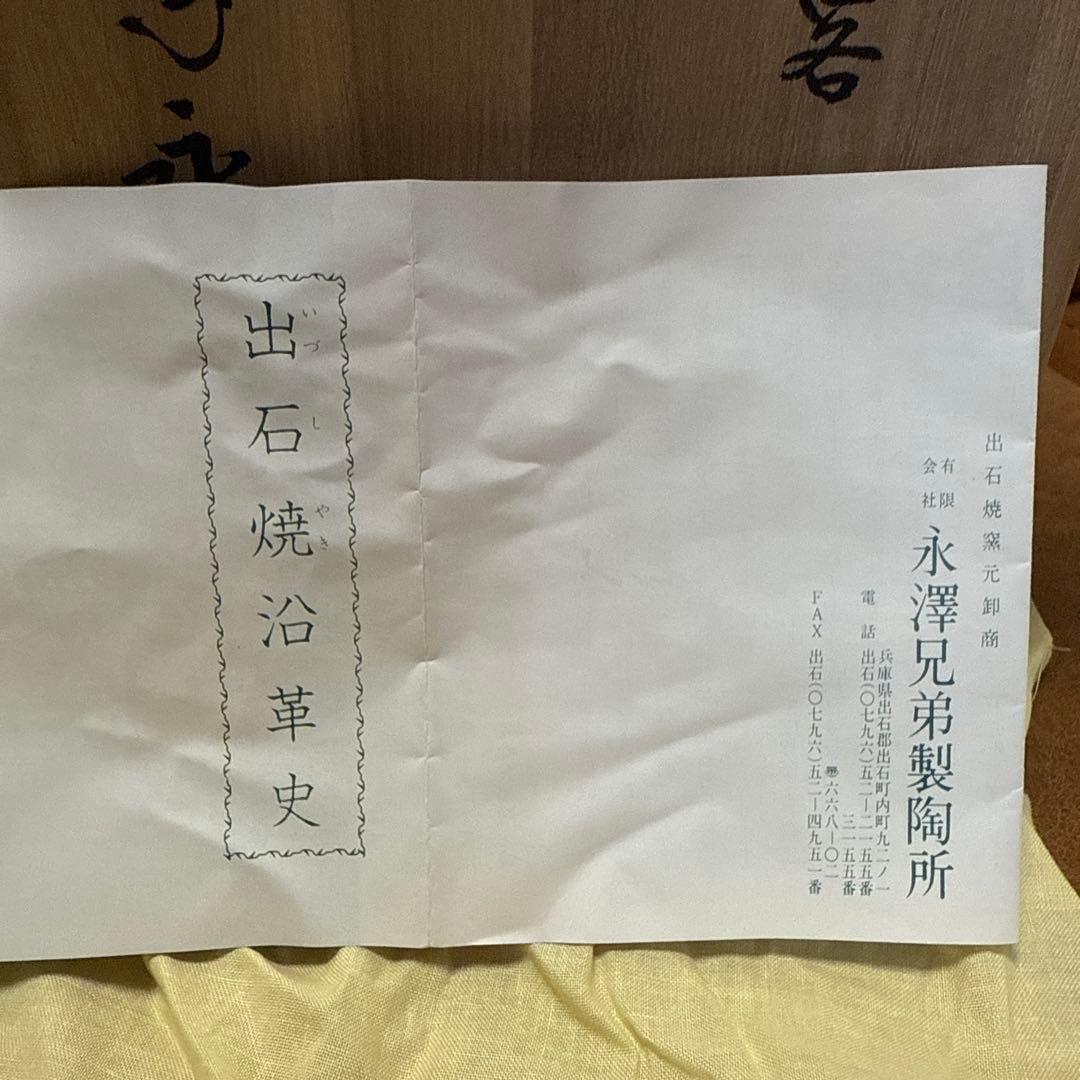 出石焼窯元卸商
有限会社 永澤兄弟製陶所
兵庫県出石郡出石町内町九二ノ一
電話 出石(〇七九六)五二―二一五五番
三一五五番
六六八―〇二
FAX 出石(〇七九六)五二―四九五一番
出石焼沿革史
いづしやき
永